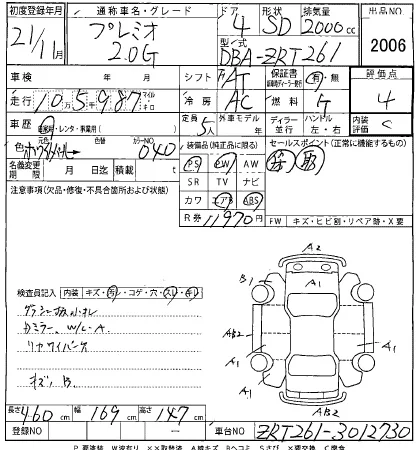 初度登録年月 通称車名・グレード ドア 形状 排気量 出品NO
21/11月 プレミオ 2.0G 4 SD 2000cc
型式 DBA-ZRT261 2006
車検 年 月 シフト AT 保証書 有・無 評価点
走行 10万5千987 マイル キロ 冷房 AC 燃料 G 4
車歴 自家用・レンタ・事業用( ) 定員 5人 外車モデル 年 ディーラー 並行 ハンドル 左・右 内装 C
色 ホワイトパール 元色 色替 カラーNO 040 装備品(純正品に限る) セールスポイント(正常に機能するもの)
名義変更期限 月 日迄 積載 t PS PW AW
注意事項(欠品・修復・不具合箇所および状態) SR TV ナビ
カワ エアB ABS
R券 11970円 FW キズ・ヒビ割・リペア跡・X要
A2
B1 A1
検査員記入 内装 キズ・汚レ・コゲ・穴・スレ・キレ
W/L A AB2 A1
リヤワイパー
A1 A1
キズ、B
AB2
長さ 460cm 幅 169cm 高さ 147cm
登録NO ー 車台NO ZRT261-3012730
P 要塗装 W波有り XX取替済 A線キズ Bヘコミ Sさび X要交換 C腐食